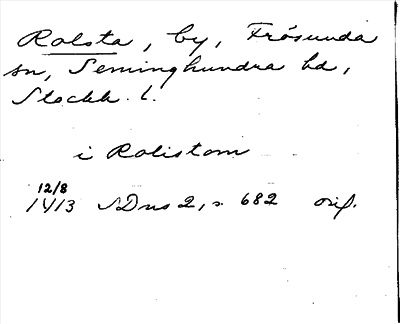 Rolsta, by, Frösunda
sn, Seminghundra hd,
Stockh. l.
i Rolistom
12/8
1413 SDns 2, s. 682 orig.